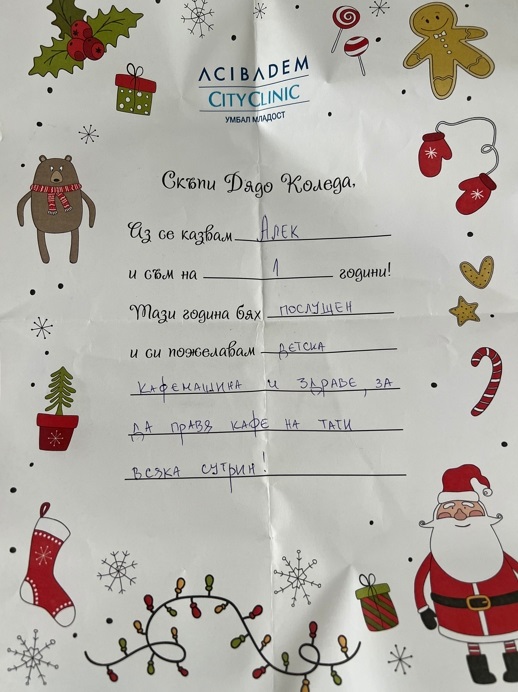 ACIBADEM
CITYCLINIC
УМБАЛ МЛАДОСТ
Скъпи Дядо Коледа,
Аз се казвам АЛЕК
и съм на 1 години!
Тази година бях ПОСЛУШЕН
и си пожелавам ДЕТСКА
КАФЕМАШИНА И ЗДРАВЕ, ЗА
ДА ПРАВЯ КАФЕ НА ТАТИ
ВСЯКА СУТРИН!